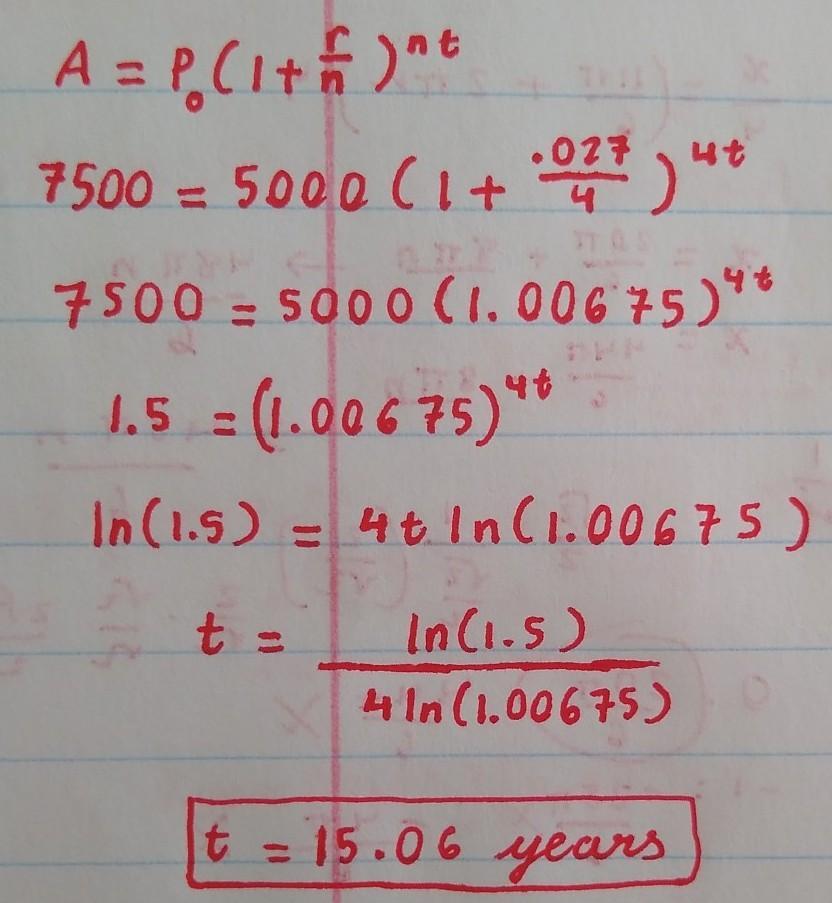 A = P₀(1 + r/n)^nt
7500 = 5000(1 + .027/4)^4t
7500 = 5000(1.00675)^4t
1.5 = (1.00675)^4t
ln(1.5) = 4t ln(1.00675)
t = ln(1.5)/4 ln(1.00675)
t = 15.06 years